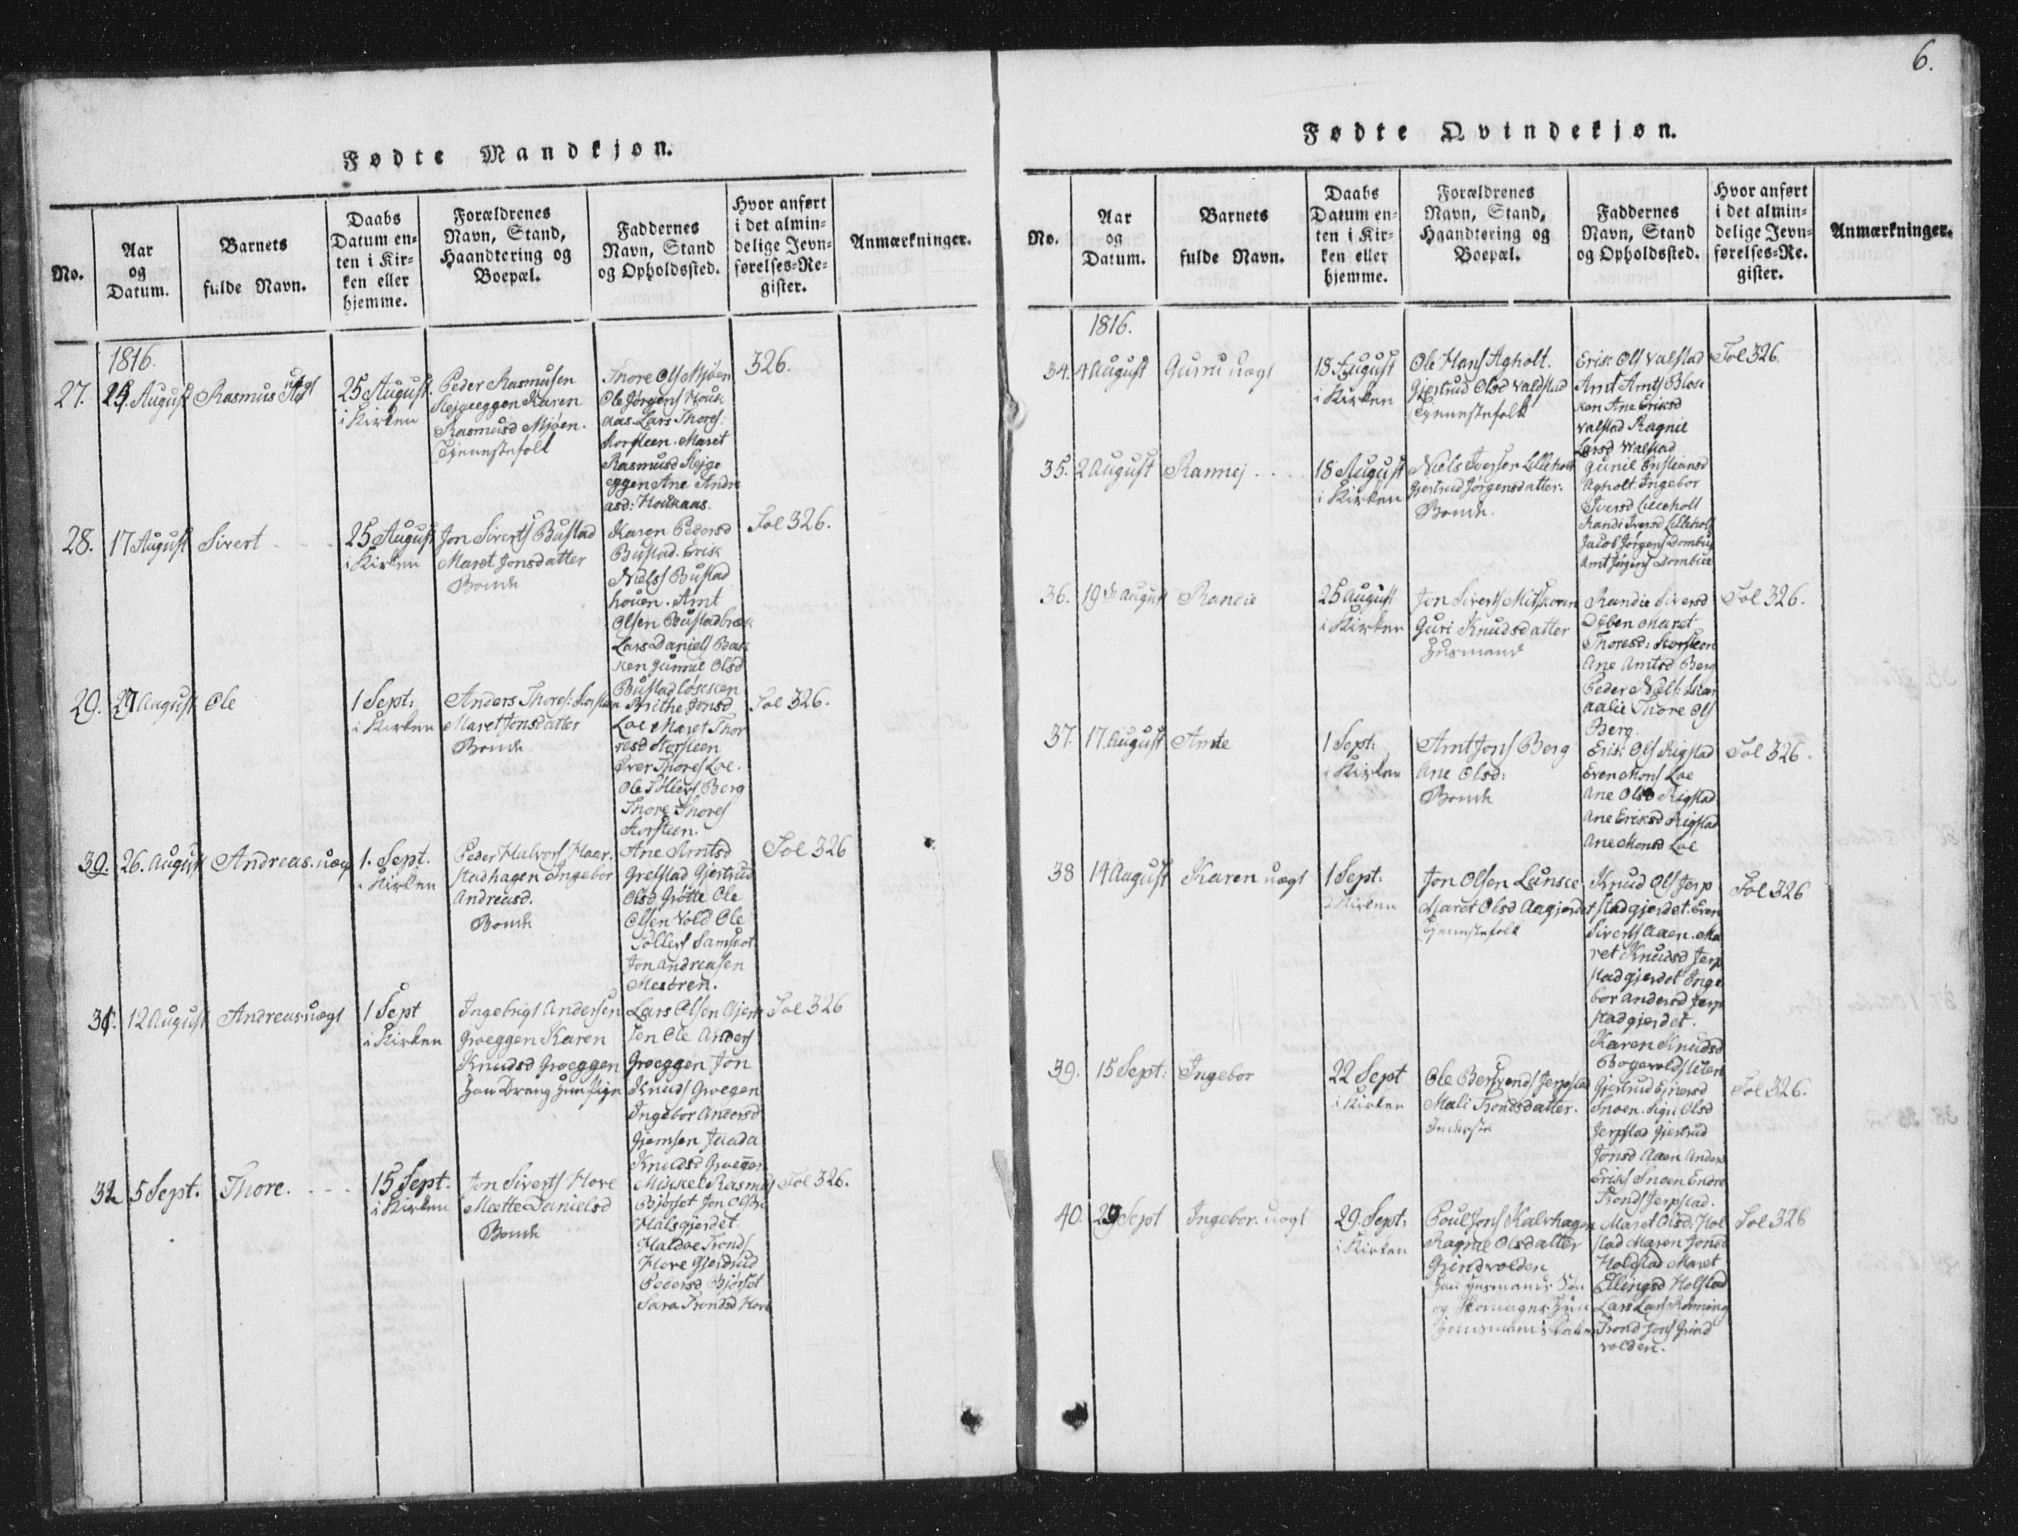 6.
Fødte Mandkjøn.
No.
Aar
og
Datum.
Barnets
fulde Navn.
Daabs
Datum en-
ten i Kir-
ken eller
hjemme.
Forældrenes
Navn, Stand,
Haandtering og
Boepæl.
Faddernes
Navn, Stand
og Opholdssted.
Hvor anført
i det almin-
delige Jevn-
førelses-Re-
gister.
Anmærkninger.
1816.
27.
August
Rasmus
25 August
i Kirken
Peder Rasmusen
Karen
Rasmusd Mjøen.
Tjenestefolk
Thore Ols Mjøen
Ole Jørgens Houk
aas. Lars Thores:
Storsteen. Maret
Rasmusd Stejge
eggen Ane Andre
asd: Houkaas.
326.
28.
17 August
Sivert
25 August
i Kirken
Jon Siverts Bustad
Maret Jonsdatter
Bonde
Karen Pedersd
Bustad. Erik
Niels Bustad
houen. Arnt
Olsen Bustadbræk
Lars Daniels Bak
ken Gunnil Olsd
Bustadløkken
Fol 326.
29.
29 August
Ole
1 Sept:
i Kirken
Anders Thores: Storsteen
Maret Jonsdatter
Bonde
Jonsd
Loe Maret Thor
resd Storsteen
Iver Thores Loe.
Ole Tollers Berg
Thore Thores
Storsteen.
Fol 326.
30.
26. August
Andreas. uægt
1. Sept.
i Kirken
Peder Halvors Haar-
stadhagen Ingebor
Andreasd.
Bonde
Ane Arntsd
Grefstad Gjertrud
Olsd Grøtte Ole
Olsen Vold Ole
Tollers Samset
Jon Andreasen
Mesøren.
Fol 326
31.
12 August
Andreas uægt
1 Sept
i Kirken
Ingebrigt Andersen
Groeggen Karen
Knudsd Groeggen
Han Dreng Hun Pige
Lars Olsen Gjem
sen Ole Anders
Groeggen Jon
Knuds Groegen
Ingebor Andersd
Gjemsen
Knudsd Groegen
Fol 326
32
5 Sept.
Thore.
15 Sept.
i Kirken
Jon Siverts Hove
Mætte Danielsd
Bonde
Mikkel Rasmus
Bjørset Jon
Halsgjerdet
Haldoe Tronds
Hove Gjertrud
Pedersd Bjørset
Sara Trondsd Hove
Fol 326.
Fødte Qvindekjøn.
No.
Aar
og
Datum.
Barnets
fulde Navn.
Daabs
Datum en-
ten i Kir-
ken eller
hjemme.
Forældrenes
Navn, Stand,
Haandtering og
Boepæl.
Faddernes
Navn, Stand
og Opholdssted.
Hvor anført
i det almin-
delige Jevn-
førelses-Re-
gister.
Anmærkninger.
1816.
34.
4 August
Guru uægt
18 August
i Kirken
Ole Hans Agholt.
Gjertrud Olsd Valdstad
Tjenestefolk
Erik Ols Valstad
Arnt Arnts Blok
ken Ane Eriksd
Valstad Ragnil
Larsd Walstad
Fol 326
35.
2 August
Rannej
18 August
i Kirken
Niels Iversen Lilleholt
Gjertrud Jørgensdatter.
Bonde.
Gunil Cristiansd
Agholt. Ingebor
Iversd Lilleholt
Randi Iversd Lilleholt
Jacob Jørgens Dombue
Arnt Jørgens Dombue
36.
19de August
Randie
25 August
i Kirken
Jon Siverts Mitskoven
Guri Knudsdatter
Husmand
Randie Siversd
Maret
Thoresd: Storsteen
Ane Arntsd Berg
Peder Niels:
Thore Ols
Berg.
Fol 326.
37.
17. August
Arnte
1 Sept:
i Kirken
Arnt Jons Berg
Ane Olsd:
Bonde
Erik Ols Rigstad
Even Mons Loe
Ane Olsd Rigstad
Ane Eriksd Rigstad
Ane Monsd Loe
Fol 326.
38
14 August
Karen uægt
1 Sept.
i Kirken
Jon Olsen Lunke
Maret Olsd Aagjerdet
Tjenestefolk
Knud Ols Jerp
stadgjerdet. Even
Siverts Aaen. Ma
ret Knudsd Jerp
stadgjerdet Inge
bor Andersd Jerp
stadgjerdet.
Karen Knudsd
Fol 326
39.
15 Sept:
Ingebor
22 Sept
i Kirken
Ole Bersvends Jerpstad
Mali Trondsdatter.
Gjertrud
Snoen. Sigri Olsd
Jerpstad Gjertrud
Jonsd Aaen Anders
Eriks Snoen Endre
Tronds Jerpstad.
Fol 326.
40.
Sept
Ingebor. uægt
29. Sept:
i Kirken
Poul Jons Kalvhagen
Ragnil Olsdatter
Grindvolden
Han Husmands Søn
og Skomager Hun
Husmands Datter
Maret Olsd: Hol
stad Maren Jonsd
Holdstad Maret
Ellingsd Holstad
Lars Lars Rønning
Trond Jons Grind
volden.
Fol 326